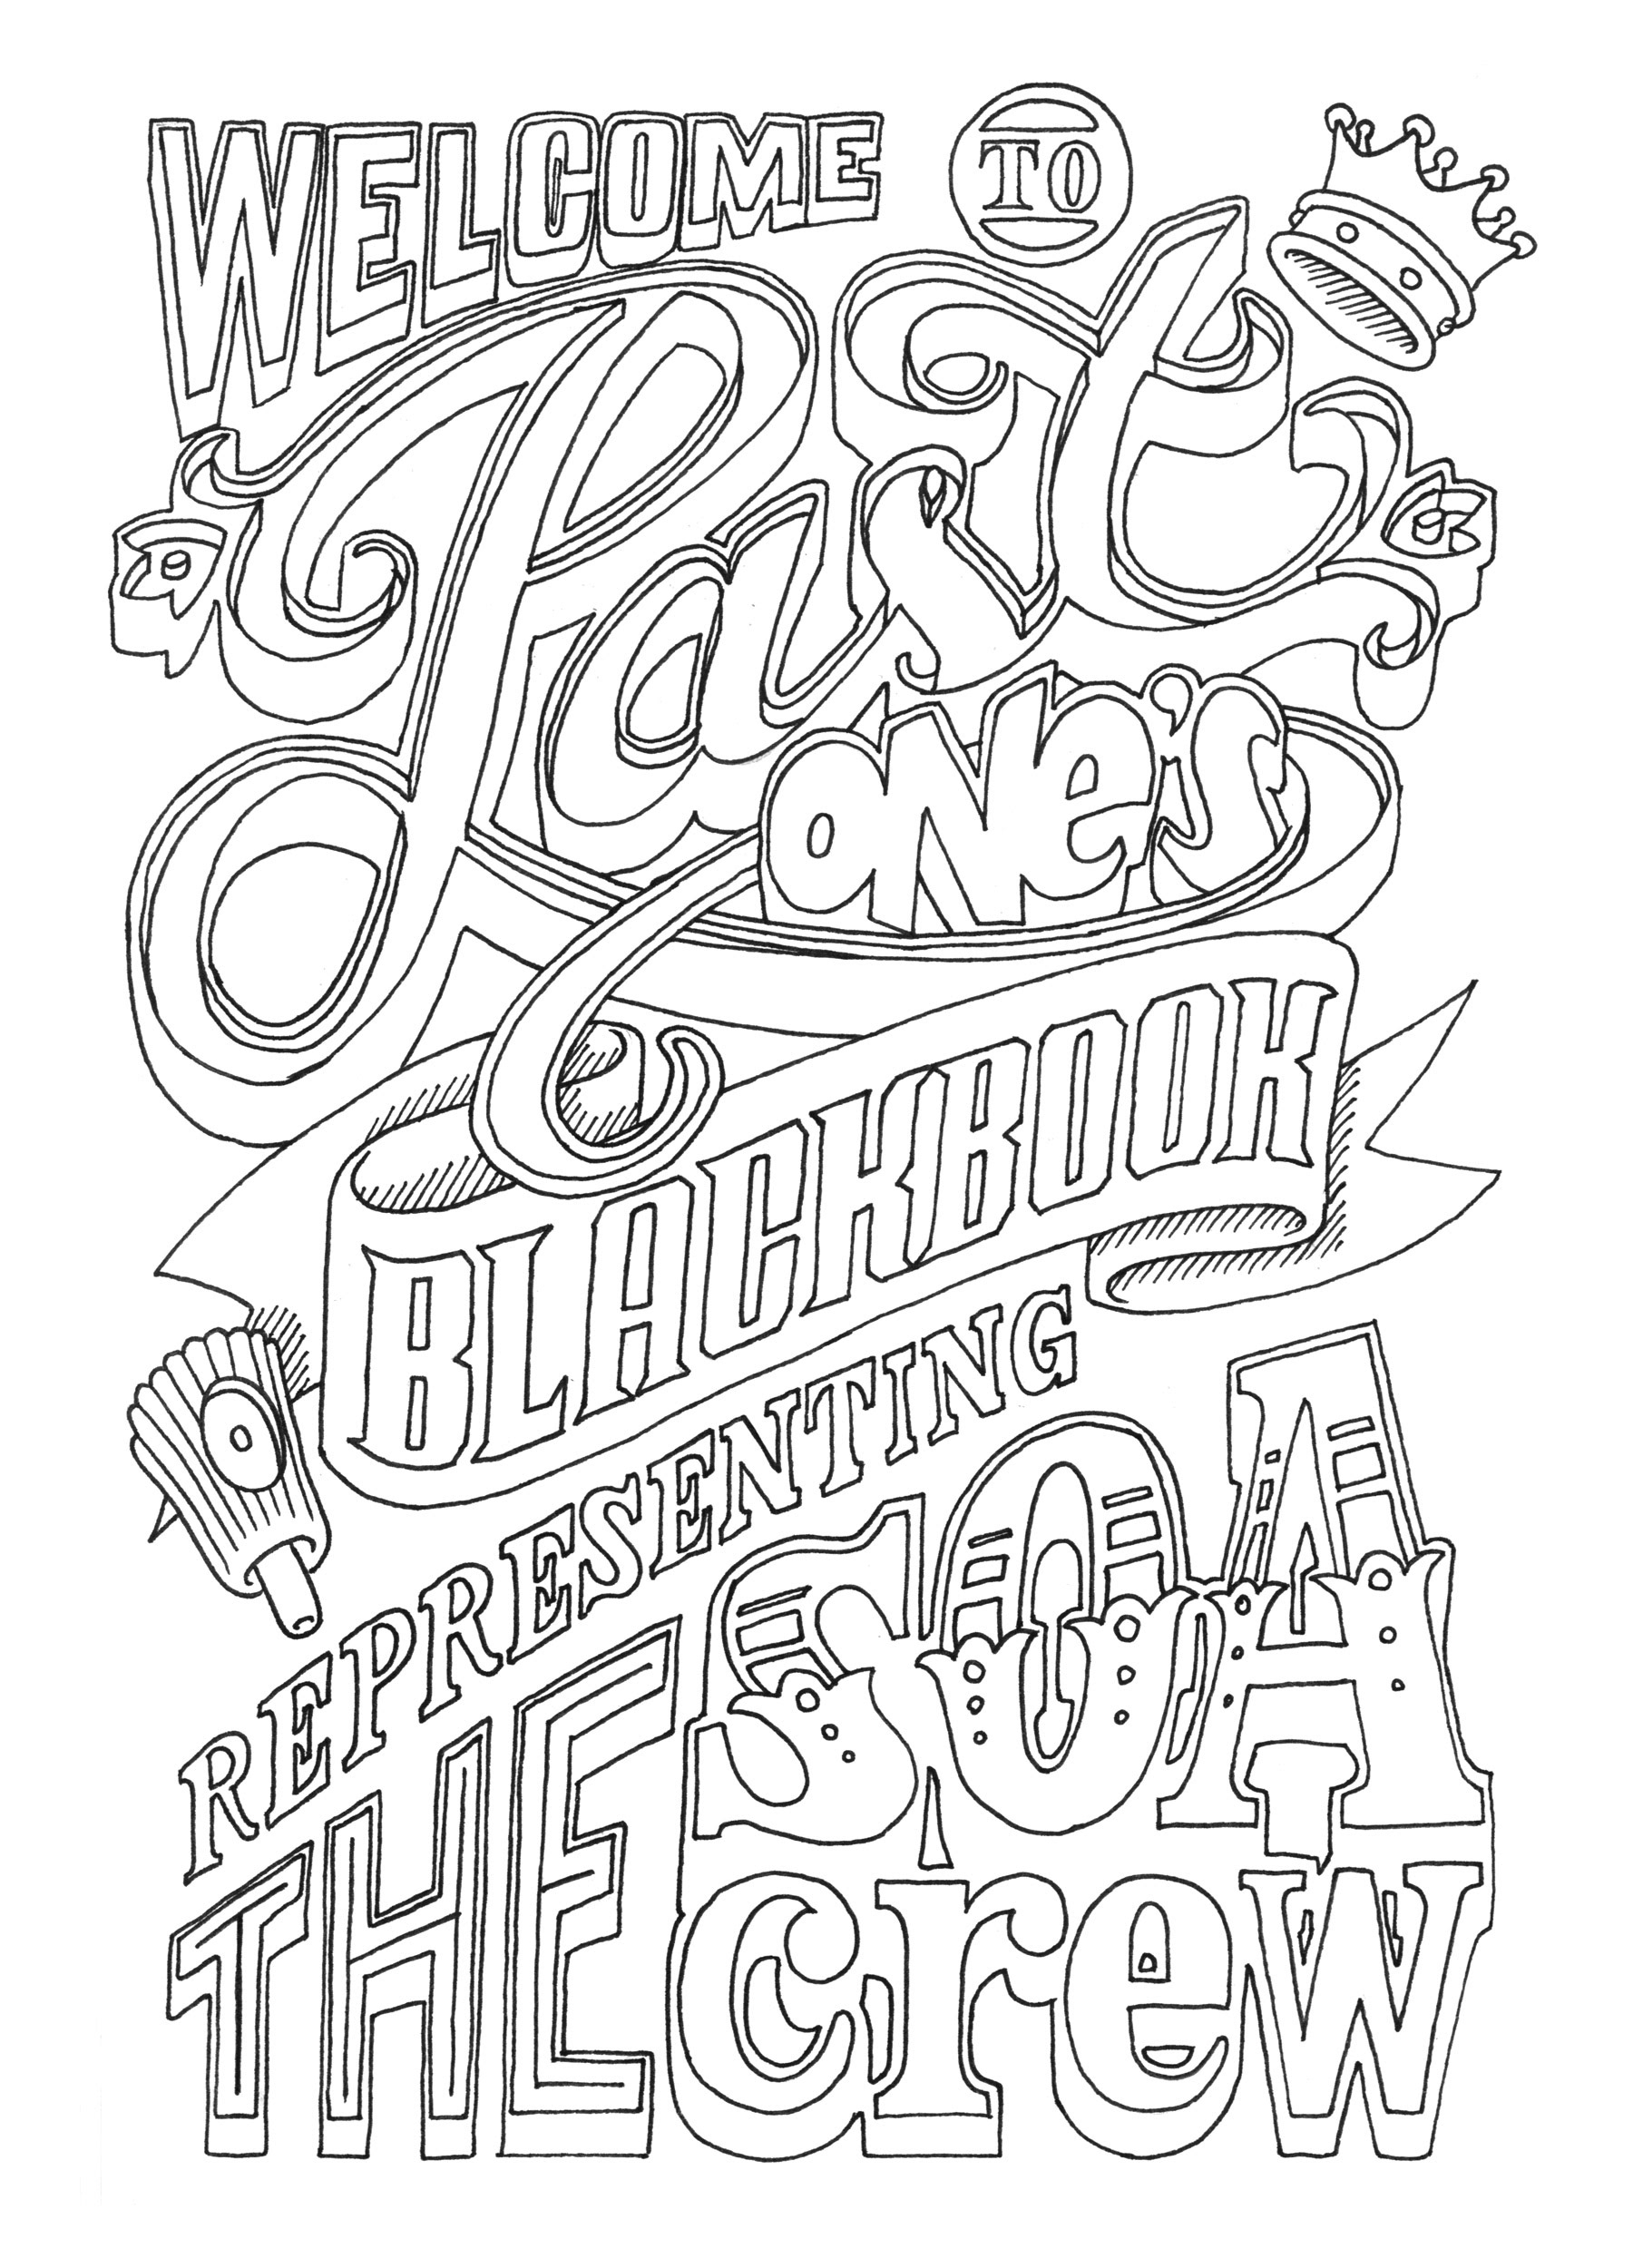 WELCOME TO
ONe's
BLACKBOOK
REPRESENTING
THE SOA
crew